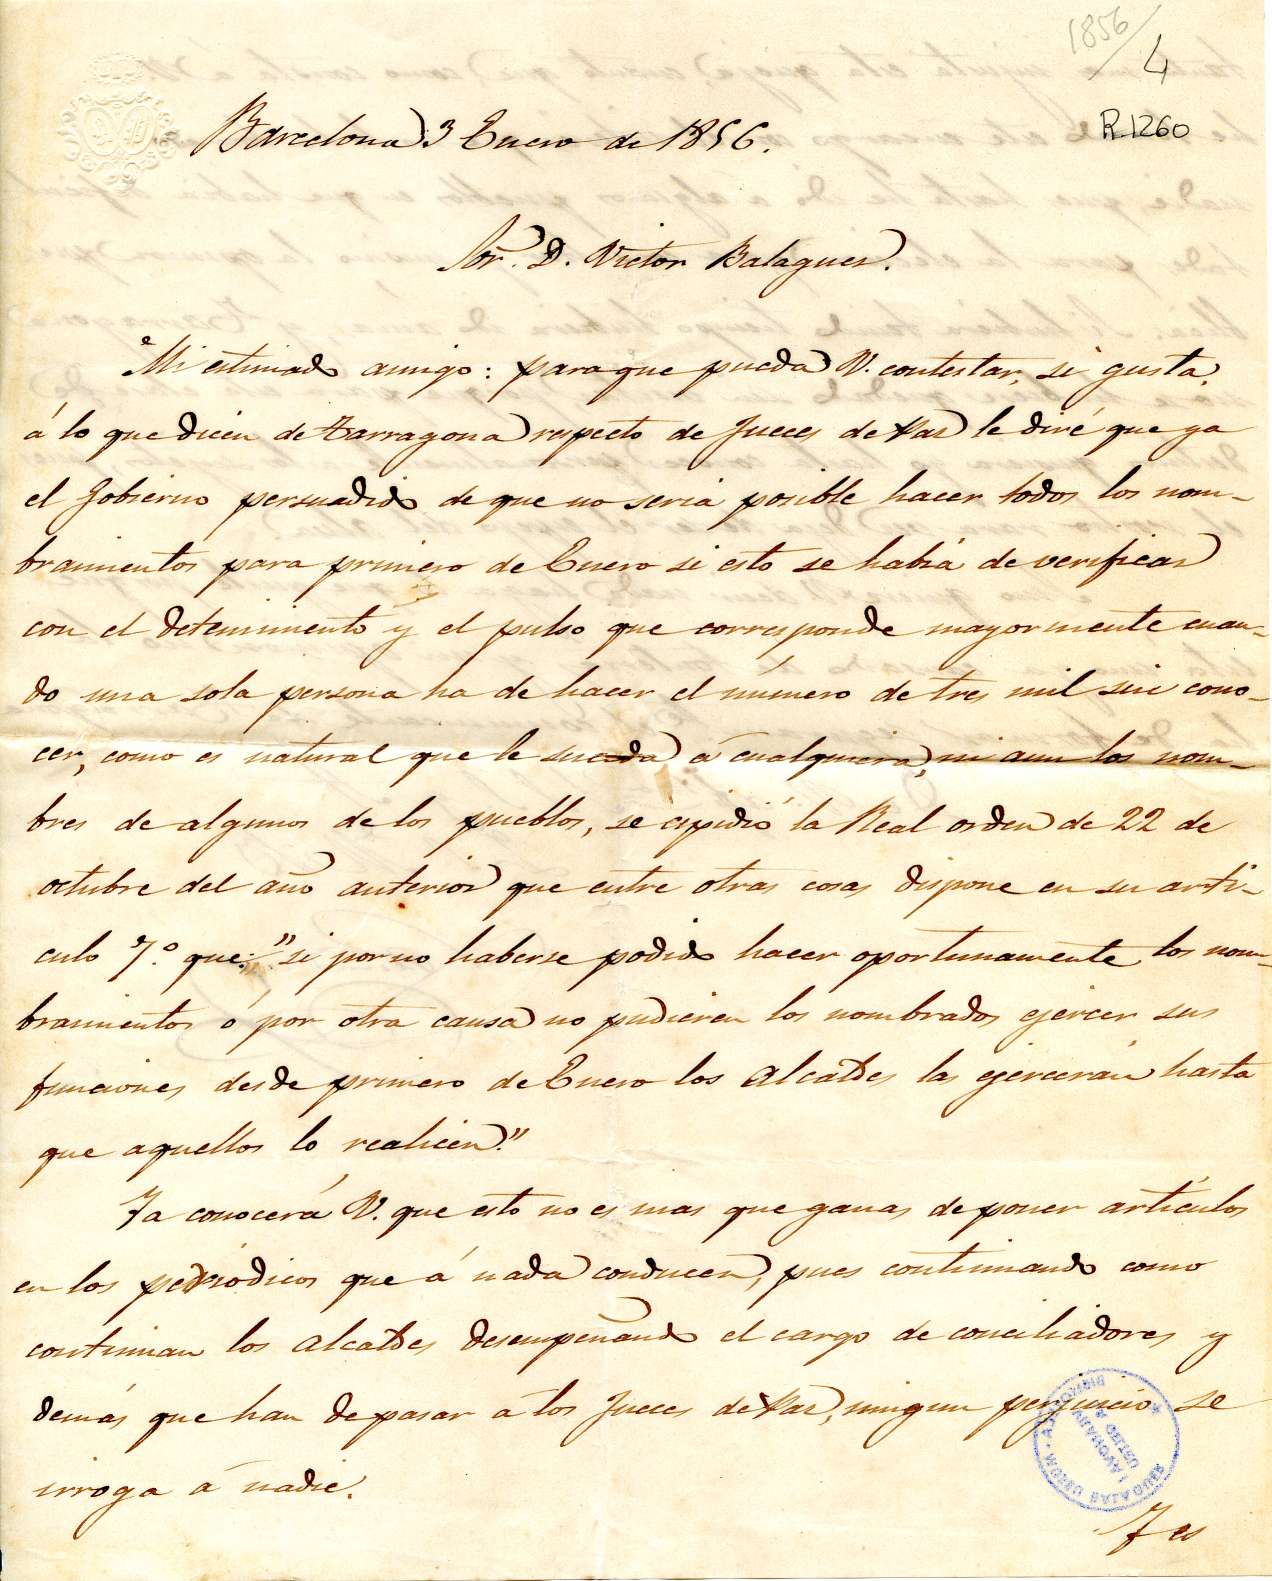 1856
4
R.1260
Barcelona 3 Enero de 1856.
Sor. D. Victor Balaguer.
Mi estimado amigo: para que pueda V. contestar, si gusta,
á lo que dicen de Tarragona respecto de Jueces de Paz le diré que ya
el Gobierno persuadido de que no seria posible hacer todos los nom-
bramientos para primero de Enero si esto se habia de verificar
con el detenimiento y el pulso que corresponde mayormente cuan-
do una sola persona ha de hacer el número de tres mil sin cono-
cer, como es natural que le suceda á cualquiera, ni aun los nom-
bres de algunos de los pueblos, se espidió la Real orden de 22 de
octubre del año anterior que entre otras cosas dispone en su artí-
culo 7.º que: "si por no haberse podido hacer oportunamente los nom-
bramientos ó por otra causa no pudieren los nombrados ejercer sus
funciones desde primero de Enero los Alcaldes las ejercerán hasta
que aquellos lo realicen."
Ya conocerá V. que esto no es mas que ganas de poner artículos
en los periódicos que á nada conducen, pues continuando como
continuan los Alcaldes desempeñando el cargo de conciliadores y
demás que han de pasar á los Jueces de Paz, ningun perjuicio se
irroga á nadie.
Y es